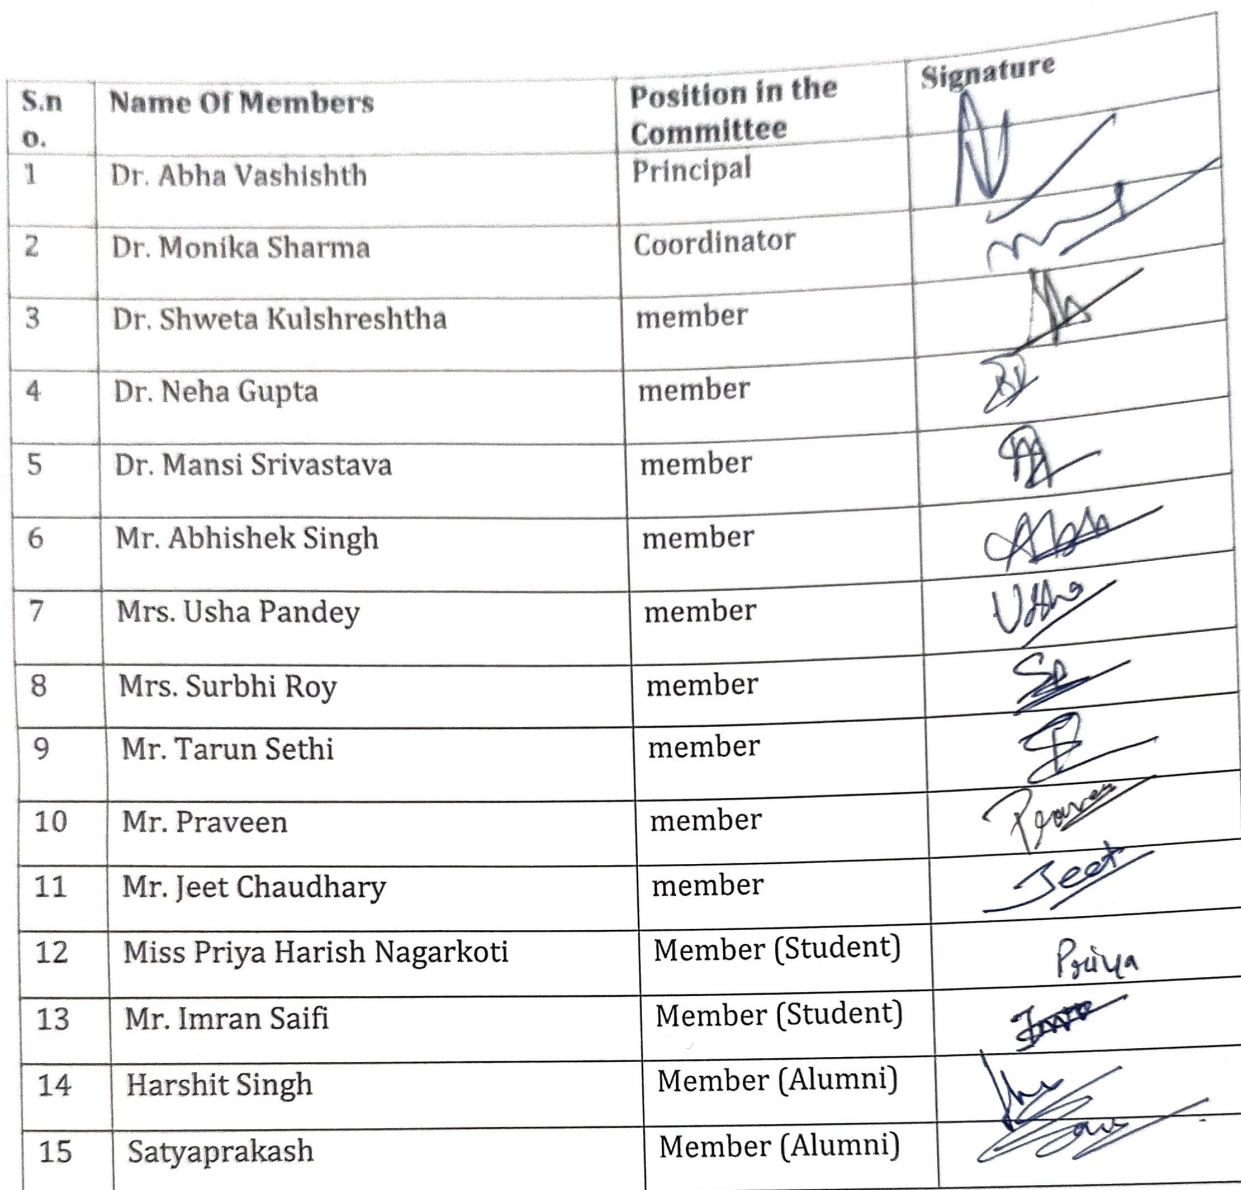 S.n o. Name Of Members Position in the Committee Signature
1 Dr. Abha Vashishth Principal
2 Dr. Monika Sharma Coordinator
3 Dr. Shweta Kulshreshtha member
4 Dr. Neha Gupta member
5 Dr. Mansi Srivastava member
6 Mr. Abhishek Singh member
7 Mrs. Usha Pandey member Usha
8 Mrs. Surbhi Roy member
9 Mr. Tarun Sethi member
10 Mr. Praveen member Praveen
11 Mr. Jeet Chaudhary member Jeet
12 Miss Priya Harish Nagarkoti Member (Student) Priya
13 Mr. Imran Saifi Member (Student)
14 Harshit Singh Member (Alumni)
15 Satyaprakash Member (Alumni)